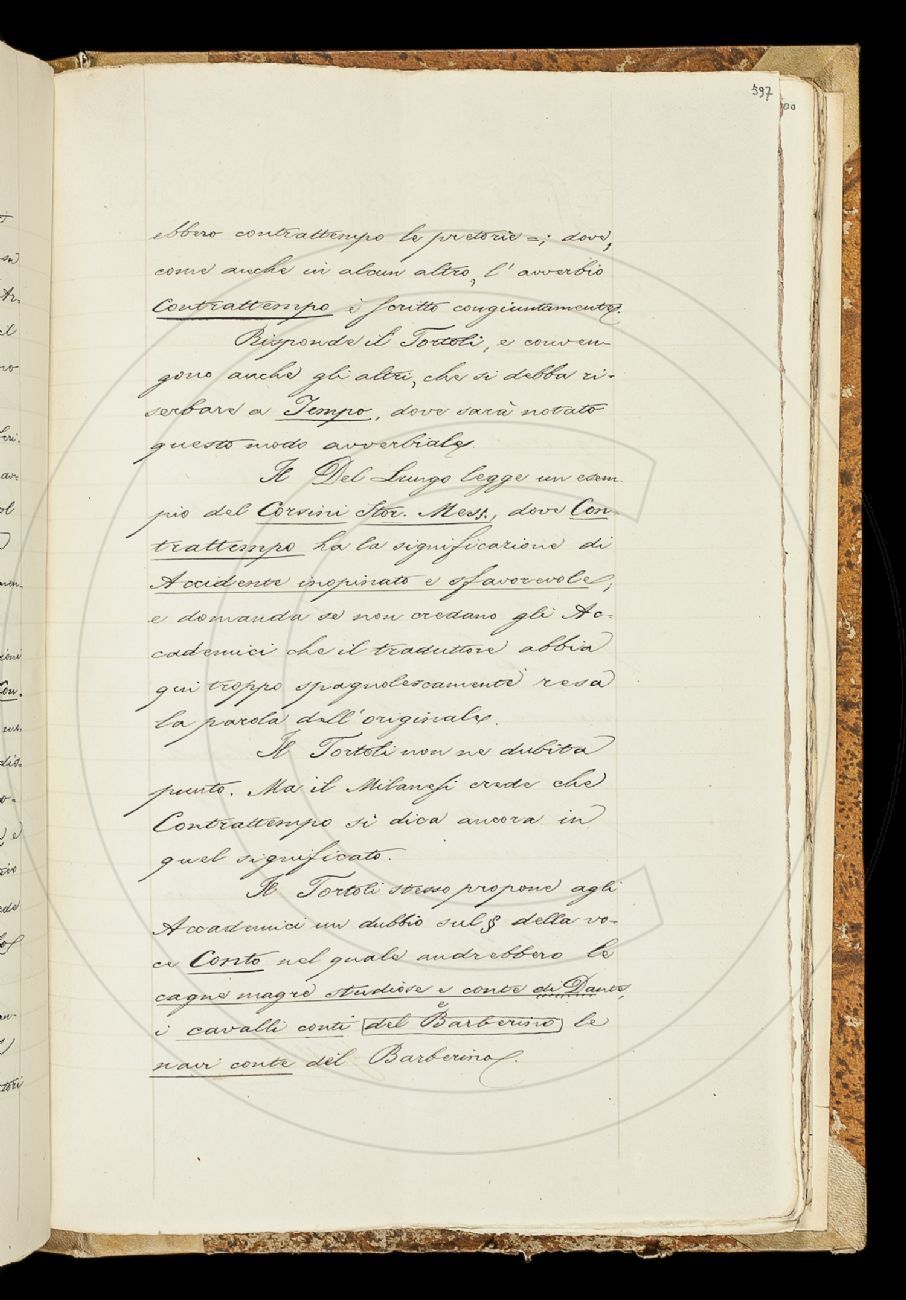 397
ebbero contrattempo le pretorie =; dove,
come anche in alcun altro, l'avverbio
Contrattempo è scritto congiuntamente.
Risponde il Tortoli, e conven-
gono anche gli altri, che si debba ri-
serbare a Tempo, dove sarà notato
questo modo avverbiale.
Il Del Lungo legge un esem-
pio del Corsini Stor. Mess., dove Con-
trattempo ha la significazione di
Accidente inopinato e sfavorevole,
e domanda se non credano gli Ac-
cademici che il traduttore abbia
qui troppo spagnolescamente resa
la parola dell'originale.
Il Tortoli non ne dubita
punto. Ma il Milanesi crede che
Contrattempo si dica ancora in
quel significato.
Il Tortoli stesso propone agli
Accademici un dubbio sul § della vo-
ce Conto nel quale andrebbero le
cagne magre studiose e conte di Dante,
i cavalli conti del Barberino e le
navi conte del Barberino.